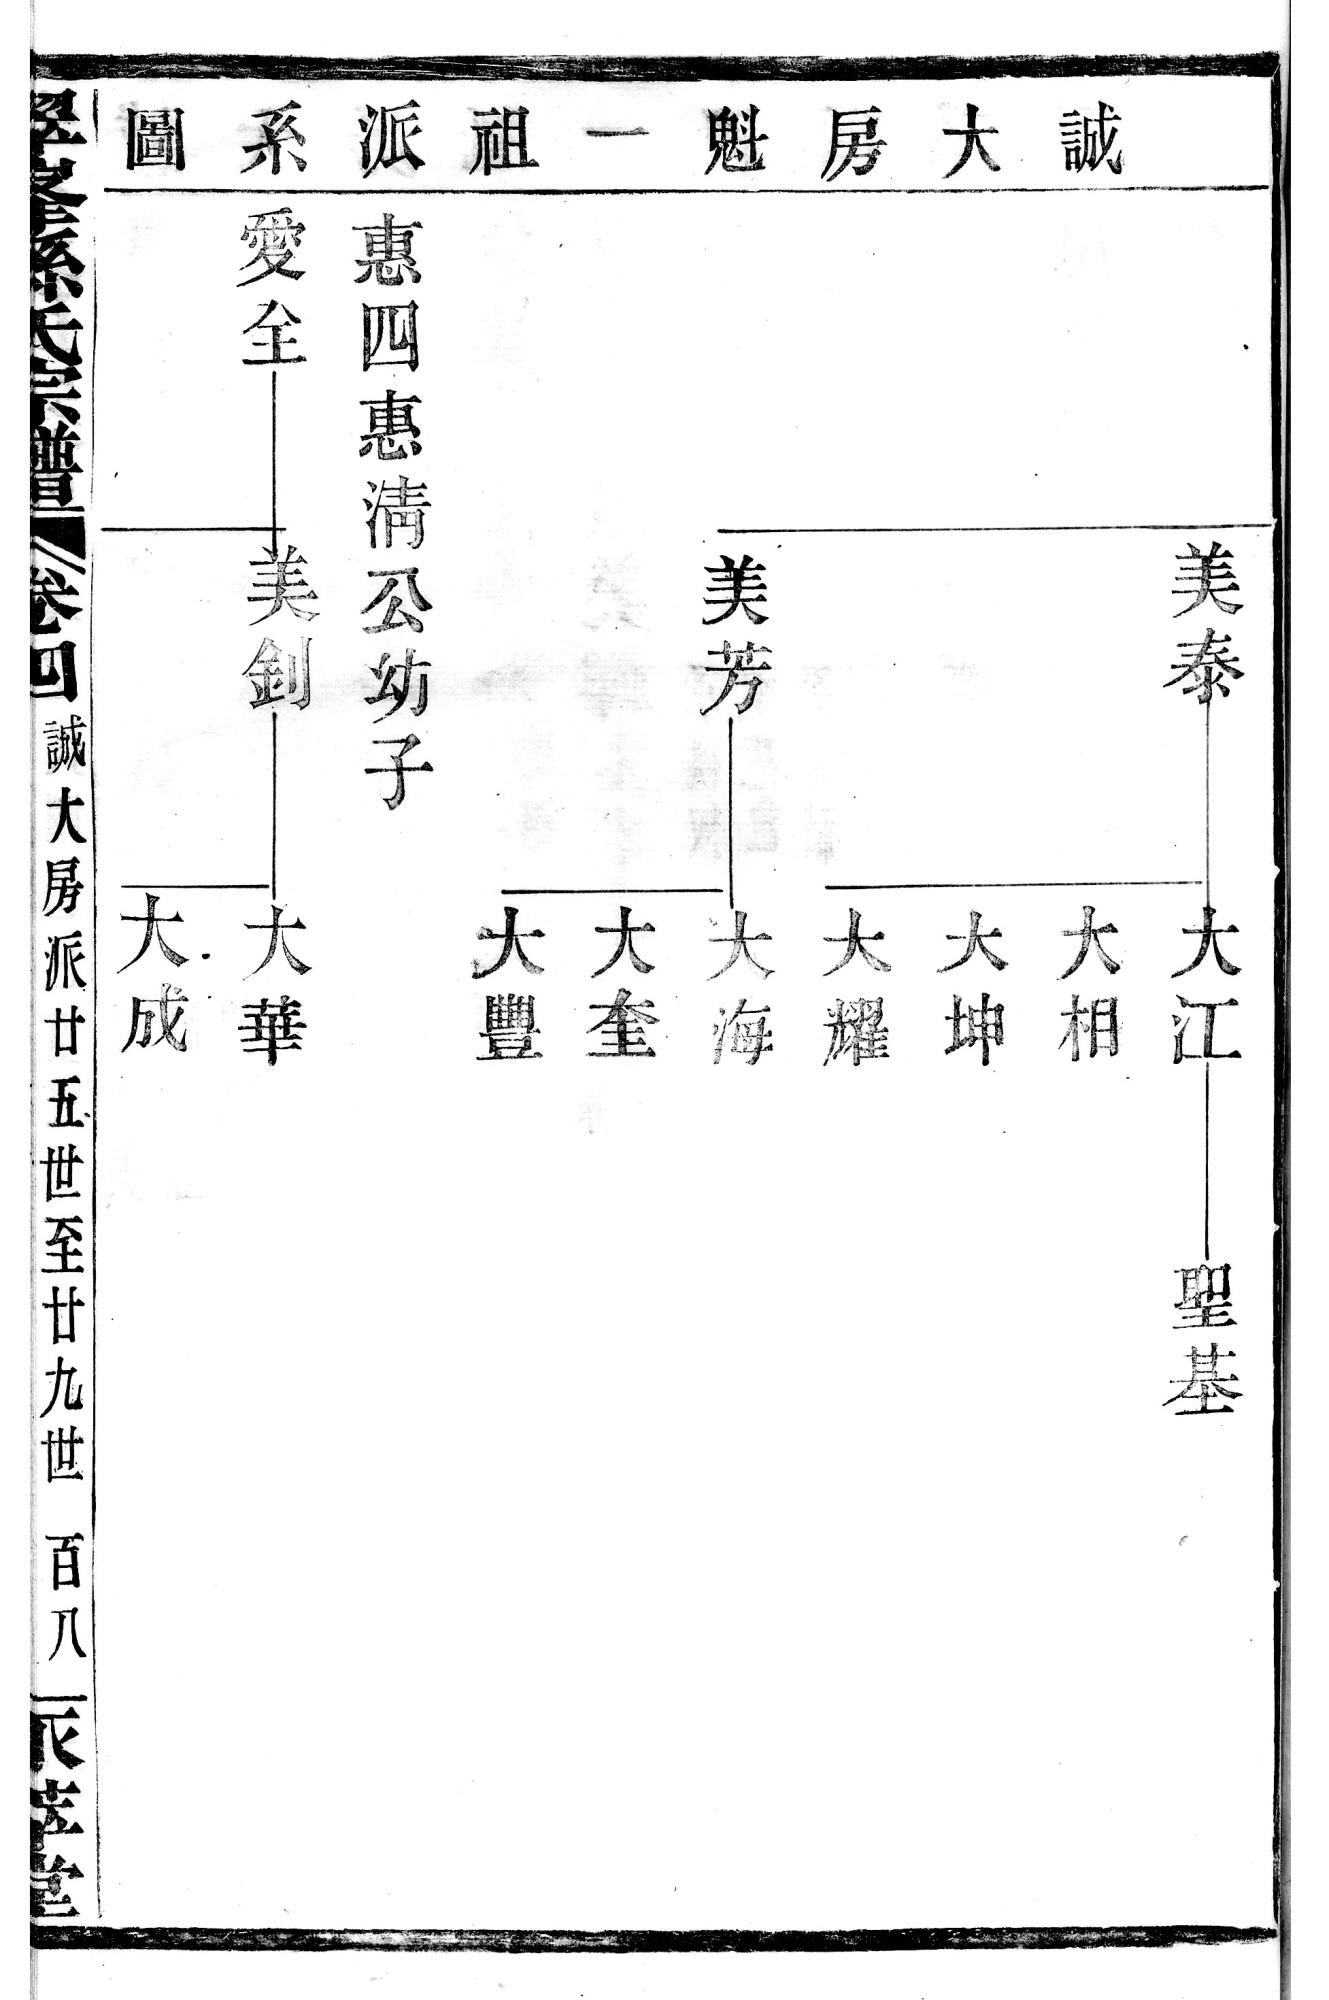 誠大房魁一祖派系圖
美泰
大江
聖基
大相
大坤
大耀
美芳
大海
大奎
大豐
惠四惠淸公幼子
愛全
美釗
大華
大成
孫氏宗譜
卷四
誠大房派廿五世至廿九世
百八
萃堂